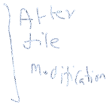 After
file
modification